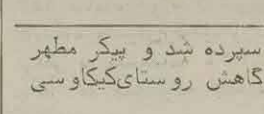 سپرده شد و پیکر مطهر
گاهش روستای کیکاوسی